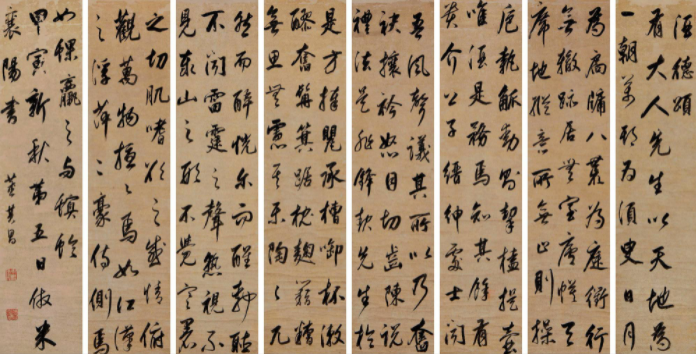 酒德頌
有大人先生以天地為
一朝萬期為須臾日月
為扃牖八荒為庭衢行
無轍跡居無室廬幕天
席地縱意所如止則操
卮執觚動則挈榼提壺
唯酒是務焉知其餘有
貴介公子縉紳處士聞
吾風聲議其所以乃奮
袂攘衿怒目切齒陳說
禮法是非鋒起先生於
是方捧甖承槽銜杯漱
醪奮髯箕踞枕麴藉糟
無思無慮其樂陶々兀
然而醉恍爾而醒靜聽
不聞雷霆之聲熟視不
見泰山之形不覺寒暑
之切肌嗜欲之感情俯
觀萬物擾々焉如江漢
之浮萍二豪侍側焉
如蜾蠃之與螟蛉
甲寅新秋第五日倣米
襄陽書 董其昌